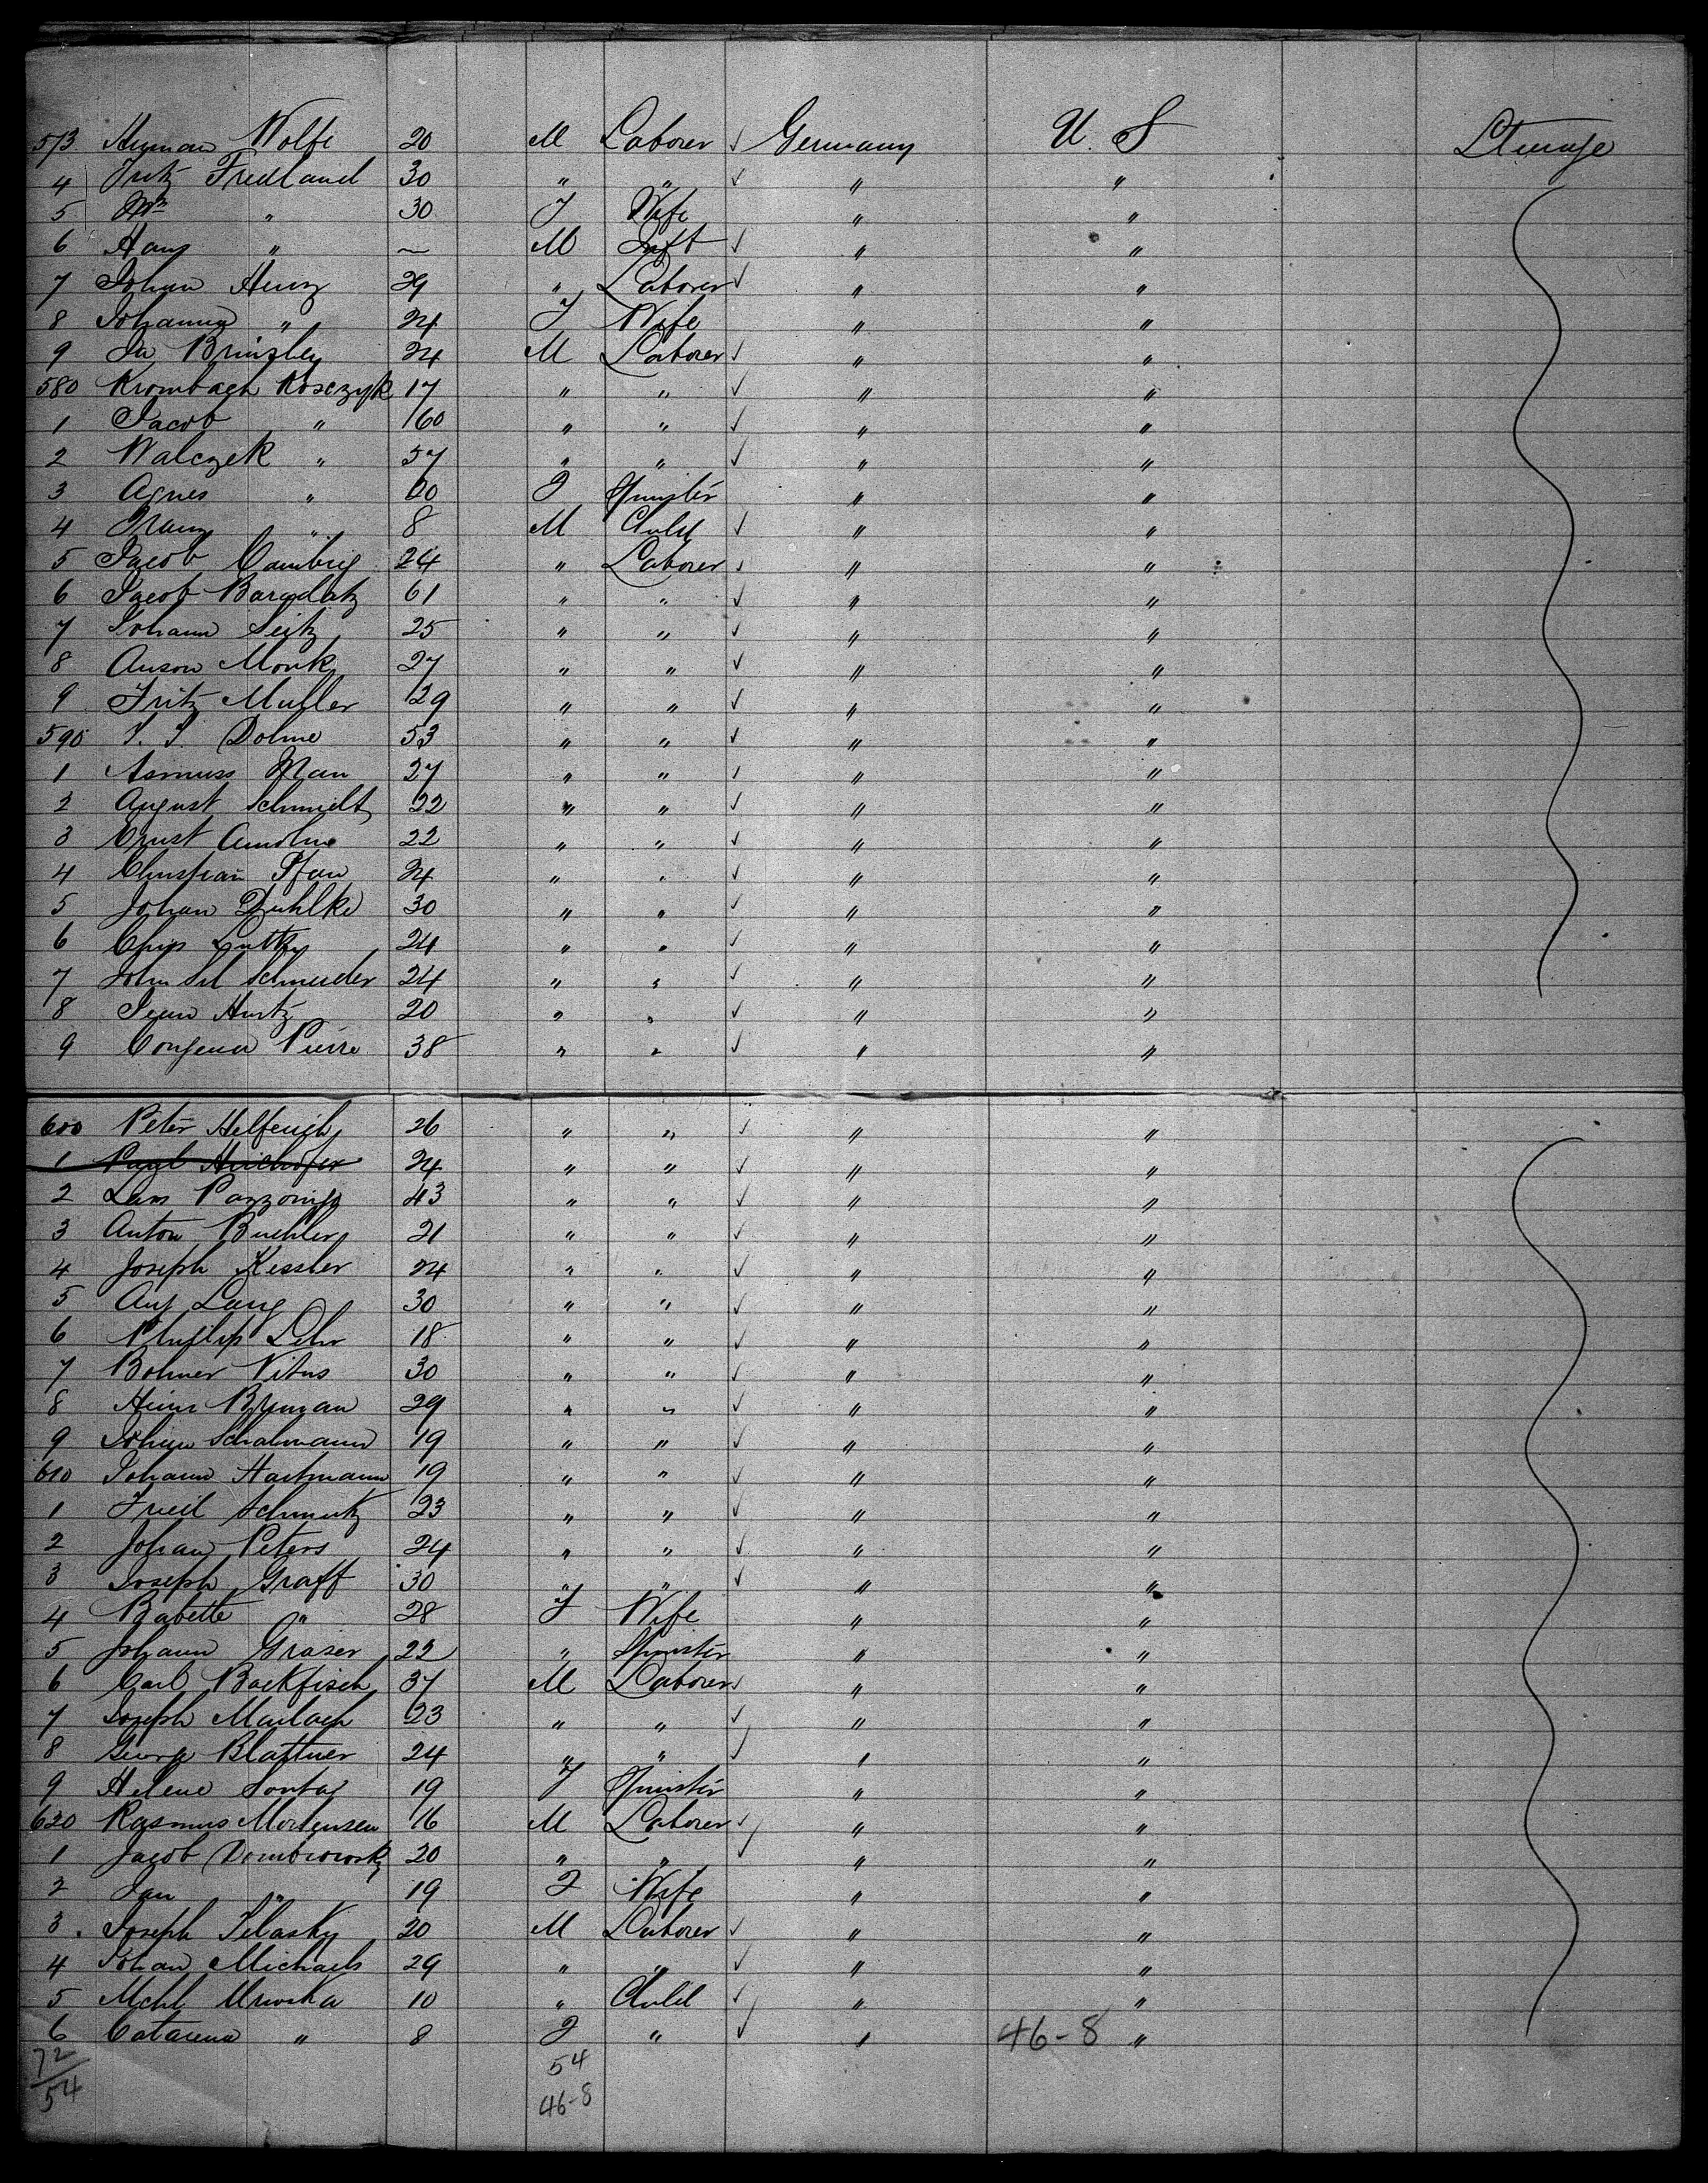 573 Heyman Wolfe 20 M Laborer ✓ Germany U. S Steerage
4 Fritz Fredland 30 " " ✓ " "
5 Mrs " 30 F Wife " "
6 Hans " ~ M Inft ✓ " "
7 Johan Henz 29 " Laborer ✓ " "
8 Johanna " 24 F Wife " "
9 Brinsley 24 M Laborer ✓ " "
580 Krombach Kosczyk 17 " " ✓ " "
1 Jacob " 60 " " ✓ " "
2 Walczek " 57 " " ✓ " "
3 Agnes " 20 F Spinster " "
4 Franz " 8 M Child ✓ " "
5 Jacob 24 " Laborer ✓ " "
6 Jacob Baradatz 61 " " ✓ " "
7 Johann Seitz 25 " " ✓ " "
8 Anson Monk 27 " " ✓ " "
9 Fritz Muller 29 " " ✓ " "
590 Dohme 53 " " ✓ " "
1 Asmuss Nan 27 " " ✓ " "
2 August Schmidt 22 " " ✓ " "
3 Ernst 22 " " ✓ " "
4 Christian Pfau 24 " " ✓ " "
5 Johan Duhlke 30 " " ✓ " "
6 Chris Lutky 24 " " ✓ " "
7 John Schneider 24 " " ✓ " "
8 Jean Hurtz 20 " " ✓ " "
9 Pierre 38 " " ✓ " "
600 Peter Helferich 26 " " ✓ " "
1 Paul Hirchofer 24 " " ✓ " "
2 Lars 43 " " ✓ " "
3 Anton Buehler 21 " " ✓ " "
4 Joseph Kessler 24 " " ✓ " "
5 Aug Lang 30 " " ✓ " "
6 Phillip Lehr 18 " " ✓ " "
7 Bohmer Vitus 30 " " ✓ " "
8 Heinr Byman 29 " " ✓ " "
9 Schahmann 19 " " ✓ " "
610 Johann Hartmann 19 " " ✓ " "
1 Fried Schmutz 23 " " ✓ " "
2 Johan Peters 24 " " ✓ " "
3 Joseph Graff 30 " " ✓ " "
4 Babette " 28 F Wife " "
5 Johann Graser 22 " Spinster " "
6 Carl Backfisch 37 M Laborer ✓ " "
7 Joseph Maulach 23 " " ✓ " "
8 George Blattner 24 " " ✓ " "
9 Helene Sontag 19 F Spinster " "
620 Rasmus Mortensen 16 M Laborer ✓ " "
1 Jacob Dombrowsky 20 " " ✓ " "
2 Jan " 19 F Wife " "
3 Joseph Silasky 20 M Laborer ✓ " "
4 Johan Michaels 29 " " ✓ " "
5 Mchl Urwska 10 " Child ✓ " "
6 Catarena " 8 F " ✓ " 46-8 "
72 54
54 46-8